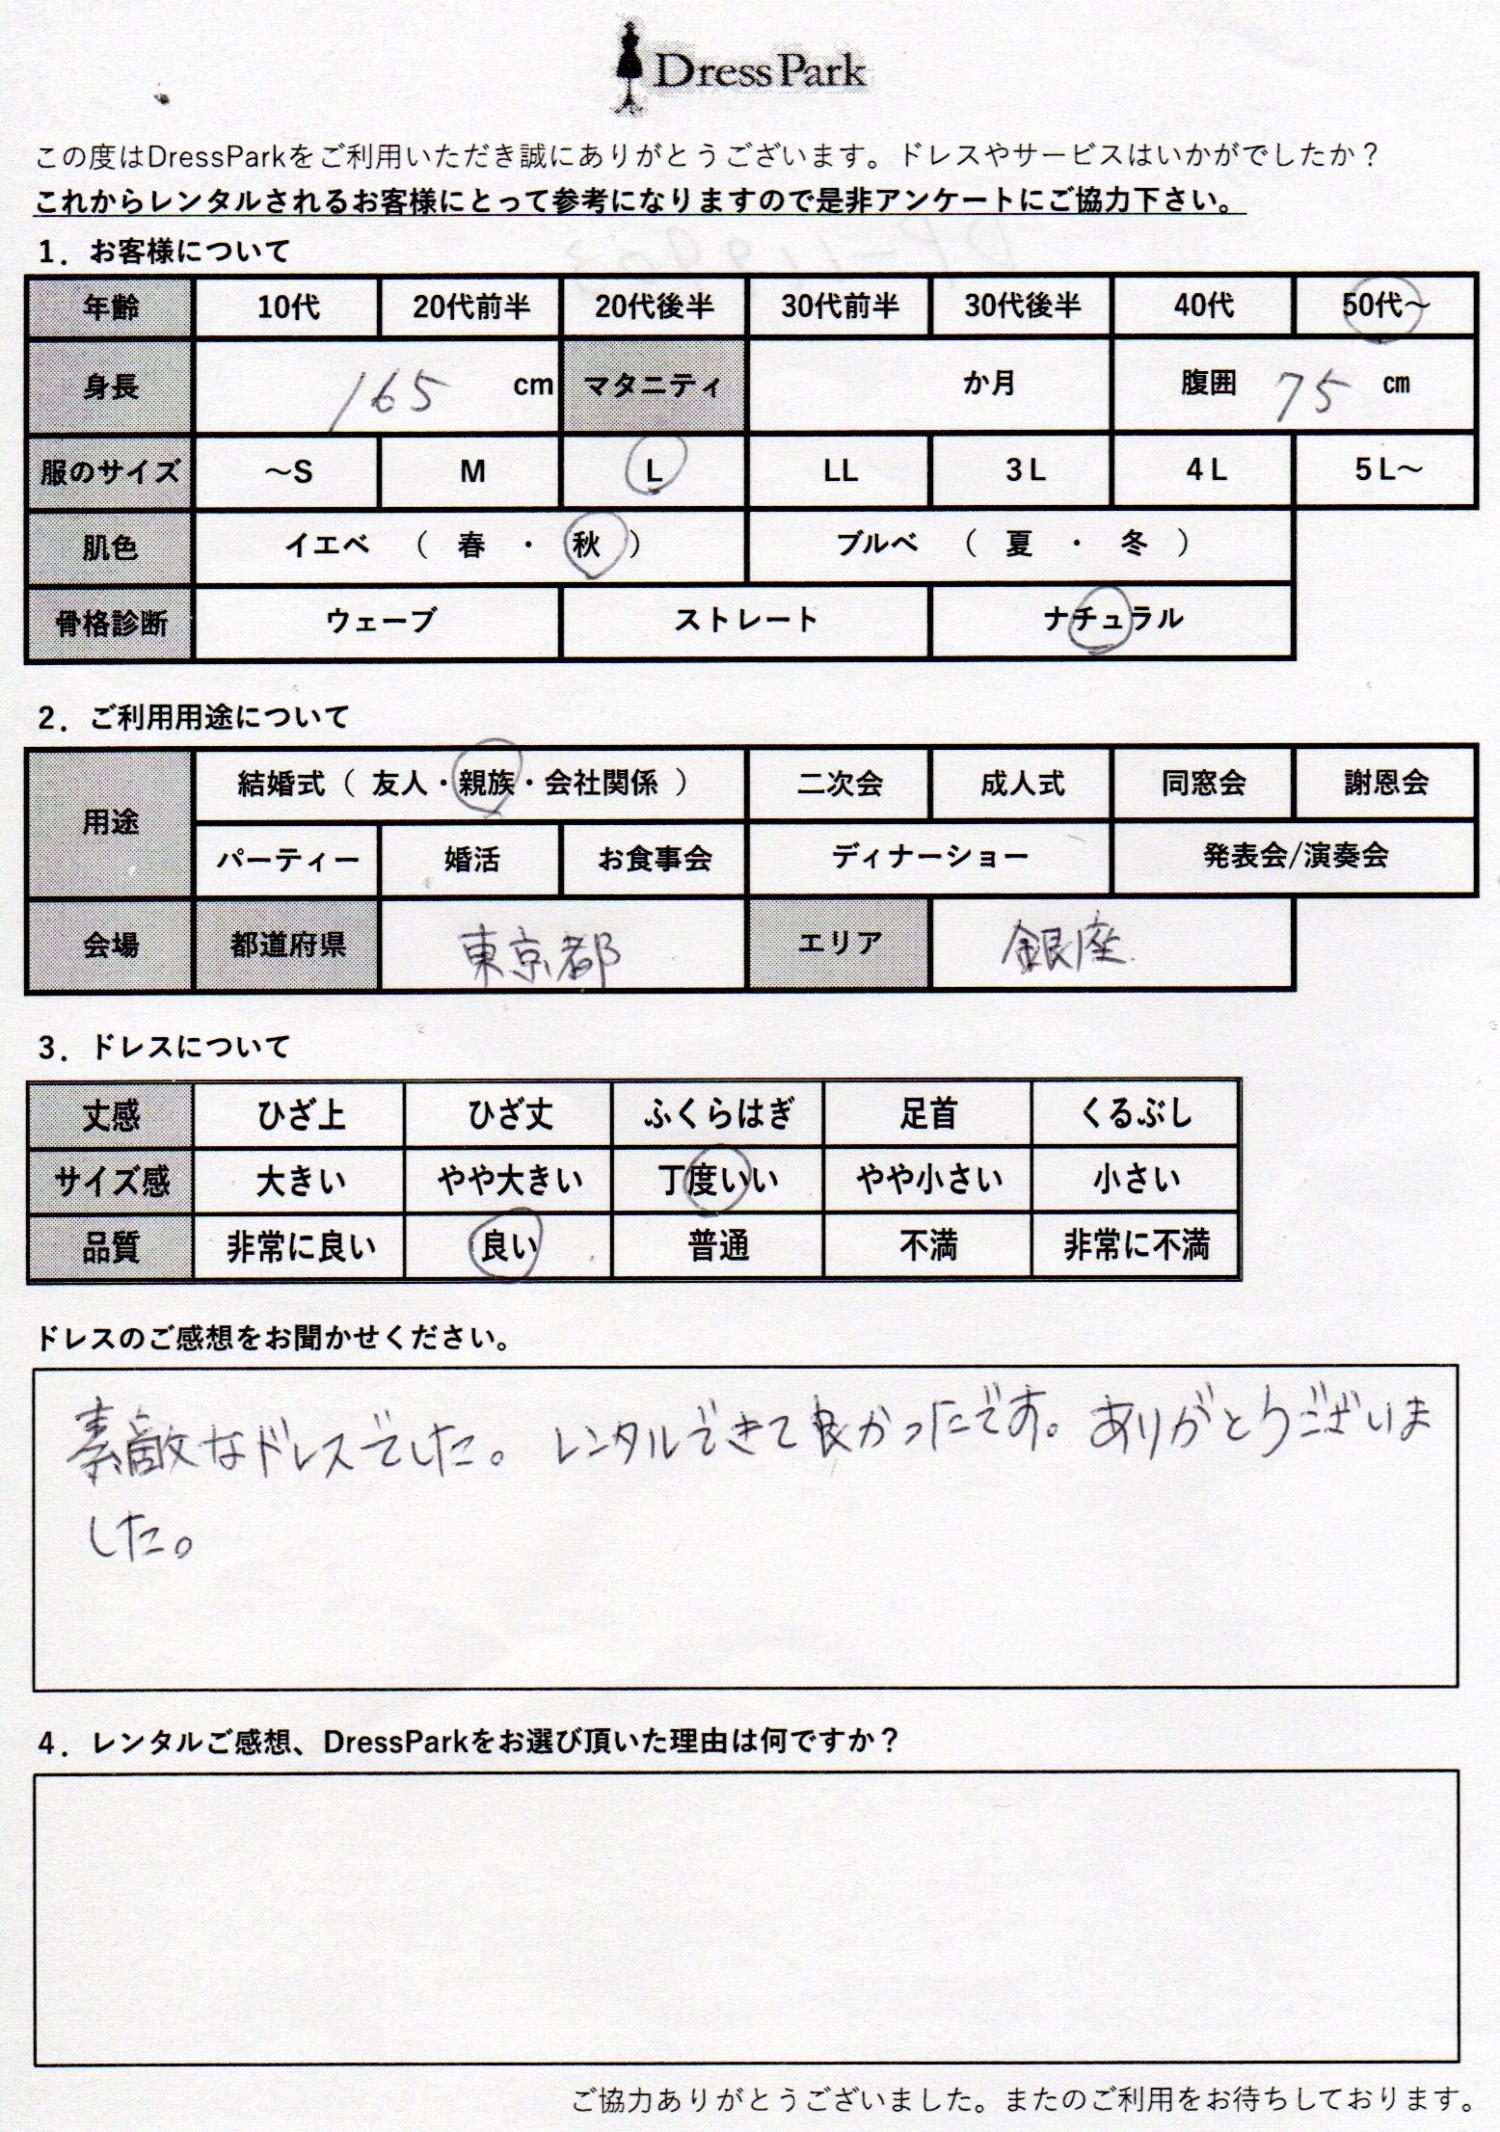 DressPark
この度はDressParkをご利用いただき誠にありがとうございます。ドレスやサービスはいかがでしたか？
これからレンタルされるお客様にとって参考になりますので是非アンケートにご協力下さい。
1．お客様について
年齢 10代 20代前半 20代後半 30代前半 30代後半 40代 50代～
身長 165 cm マタニティ か月 腹囲 75 cm
服のサイズ ～S M L LL 3L 4L 5L～
肌色 イエベ （ 春 ・ 秋 ） ブルベ （ 夏 ・ 冬 ）
骨格診断 ウェーブ ストレート ナチュラル
2．ご利用用途について
用途 結婚式（ 友人・親族・会社関係 ） 二次会 成人式 同窓会 謝恩会
パーティー 婚活 お食事会 ディナーショー 発表会/演奏会
会場 都道府県 東京都 エリア 銀座
3．ドレスについて
丈感 ひざ上 ひざ丈 ふくらはぎ 足首 くるぶし
サイズ感 大きい やや大きい 丁度いい やや小さい 小さい
品質 非常に良い 良い 普通 不満 非常に不満
ドレスのご感想をお聞かせください。
素敵なドレスでした。レンタルできて良かったです。ありがとうございま
した。
4．レンタルご感想、DressParkをお選び頂いた理由は何ですか？
ご協力ありがとうございました。またのご利用をお待ちしております。